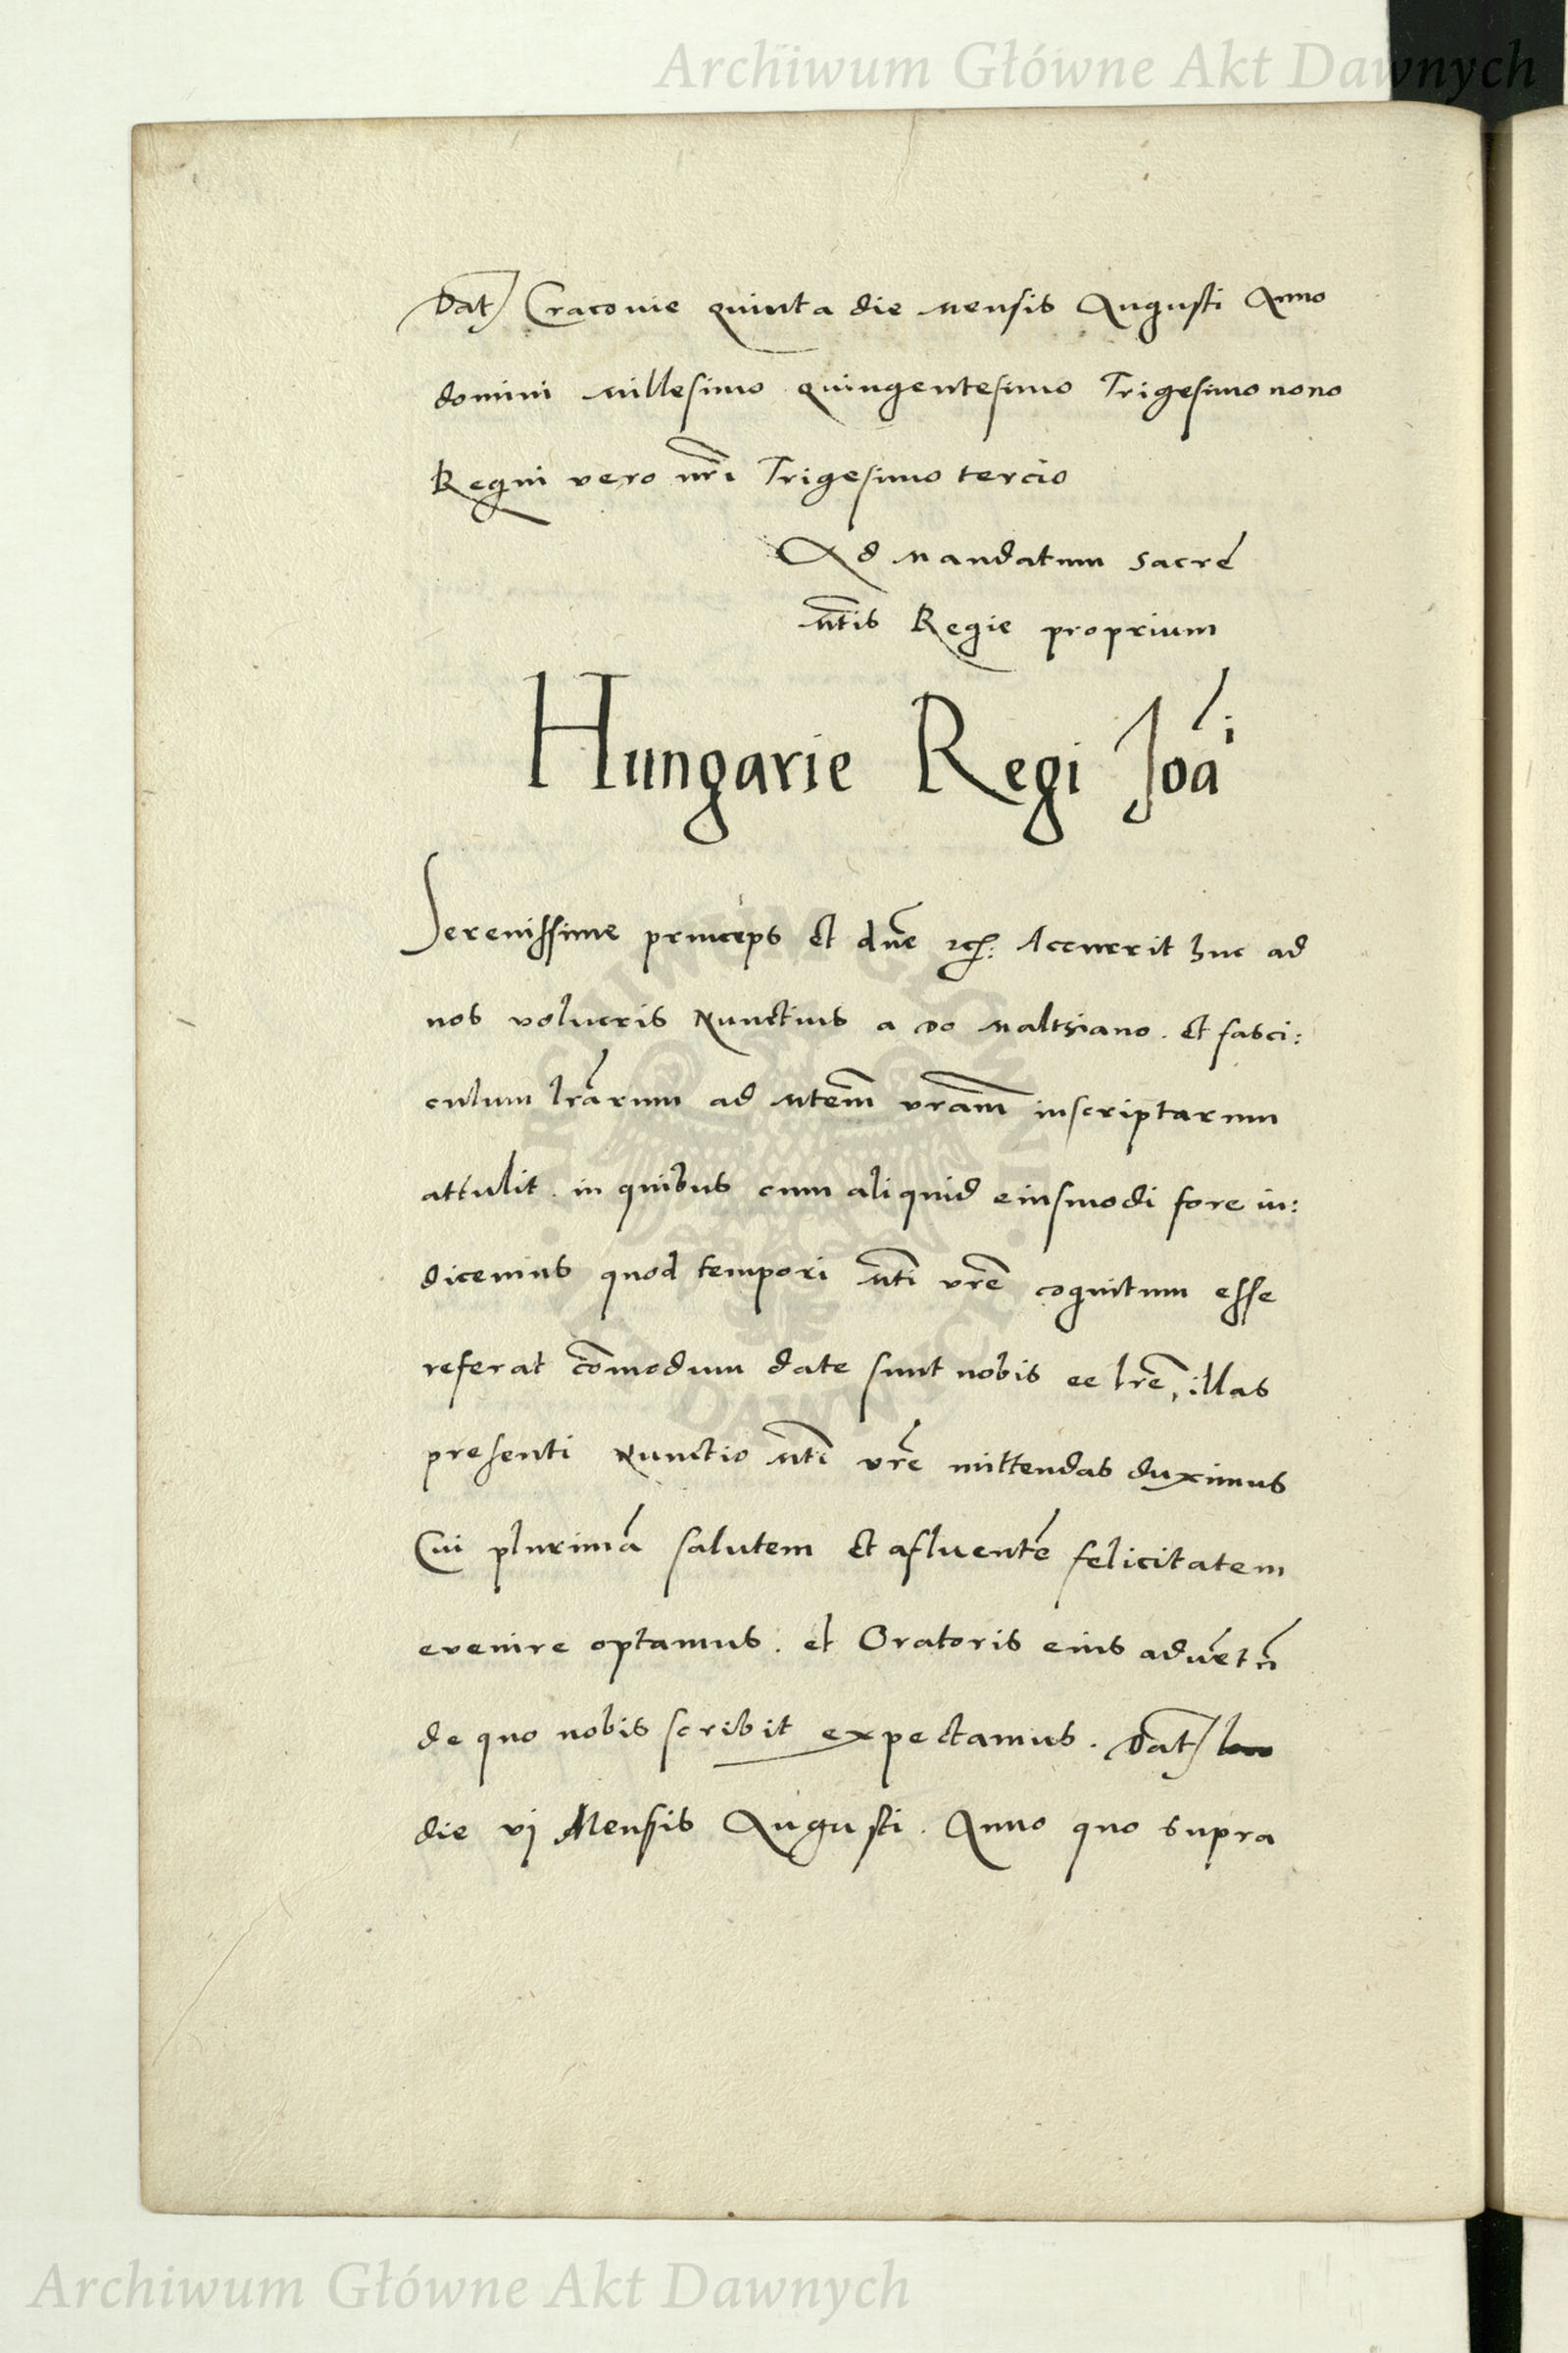 Archiwum Główne Akt Dawnych
Dat Cracovie quinta die mensis Augusti Anno
domini millesimo quingentesimo Trigesimo nono
Regni vero nr̄i Trigesimo tercio
Ad mandatum sacre
mt̄is Regie proprium
Hungarie Regi Joā
Serenissime princeps et dn̄e Accucurrit huc ad
nos volucris Nunctius a do Maltziano. Et fasci:
culum lr̄arum ad mtem̄ vram̄ inscriptarum
attulit. in quibus cum aliquid eiusmodi fore in:
dicemus quod tempori mt̄i vrē cognitum esse
referat cōmodum date sunt nobis ee lrē, illas
presenti Nunctio mt̄i vrē mittendas duximus
Cui plurimā salutem et afluentē felicitatem
evenire optamus. et Oratoris eius advētū
de quo nobis scribit expectamus. Dat
die vj Mensis Augusti. Anno quo supra
Archiwum Główne Akt Dawnych